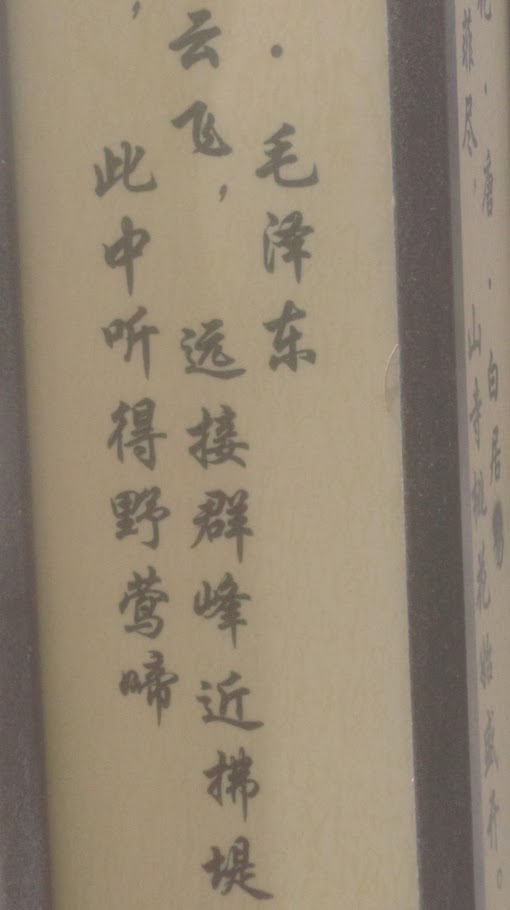 花·唐·白居易
菲尽，山寺桃花始盛开。
·毛泽东
云飞，远接群峰近拂堤
，此中听得野莺啼